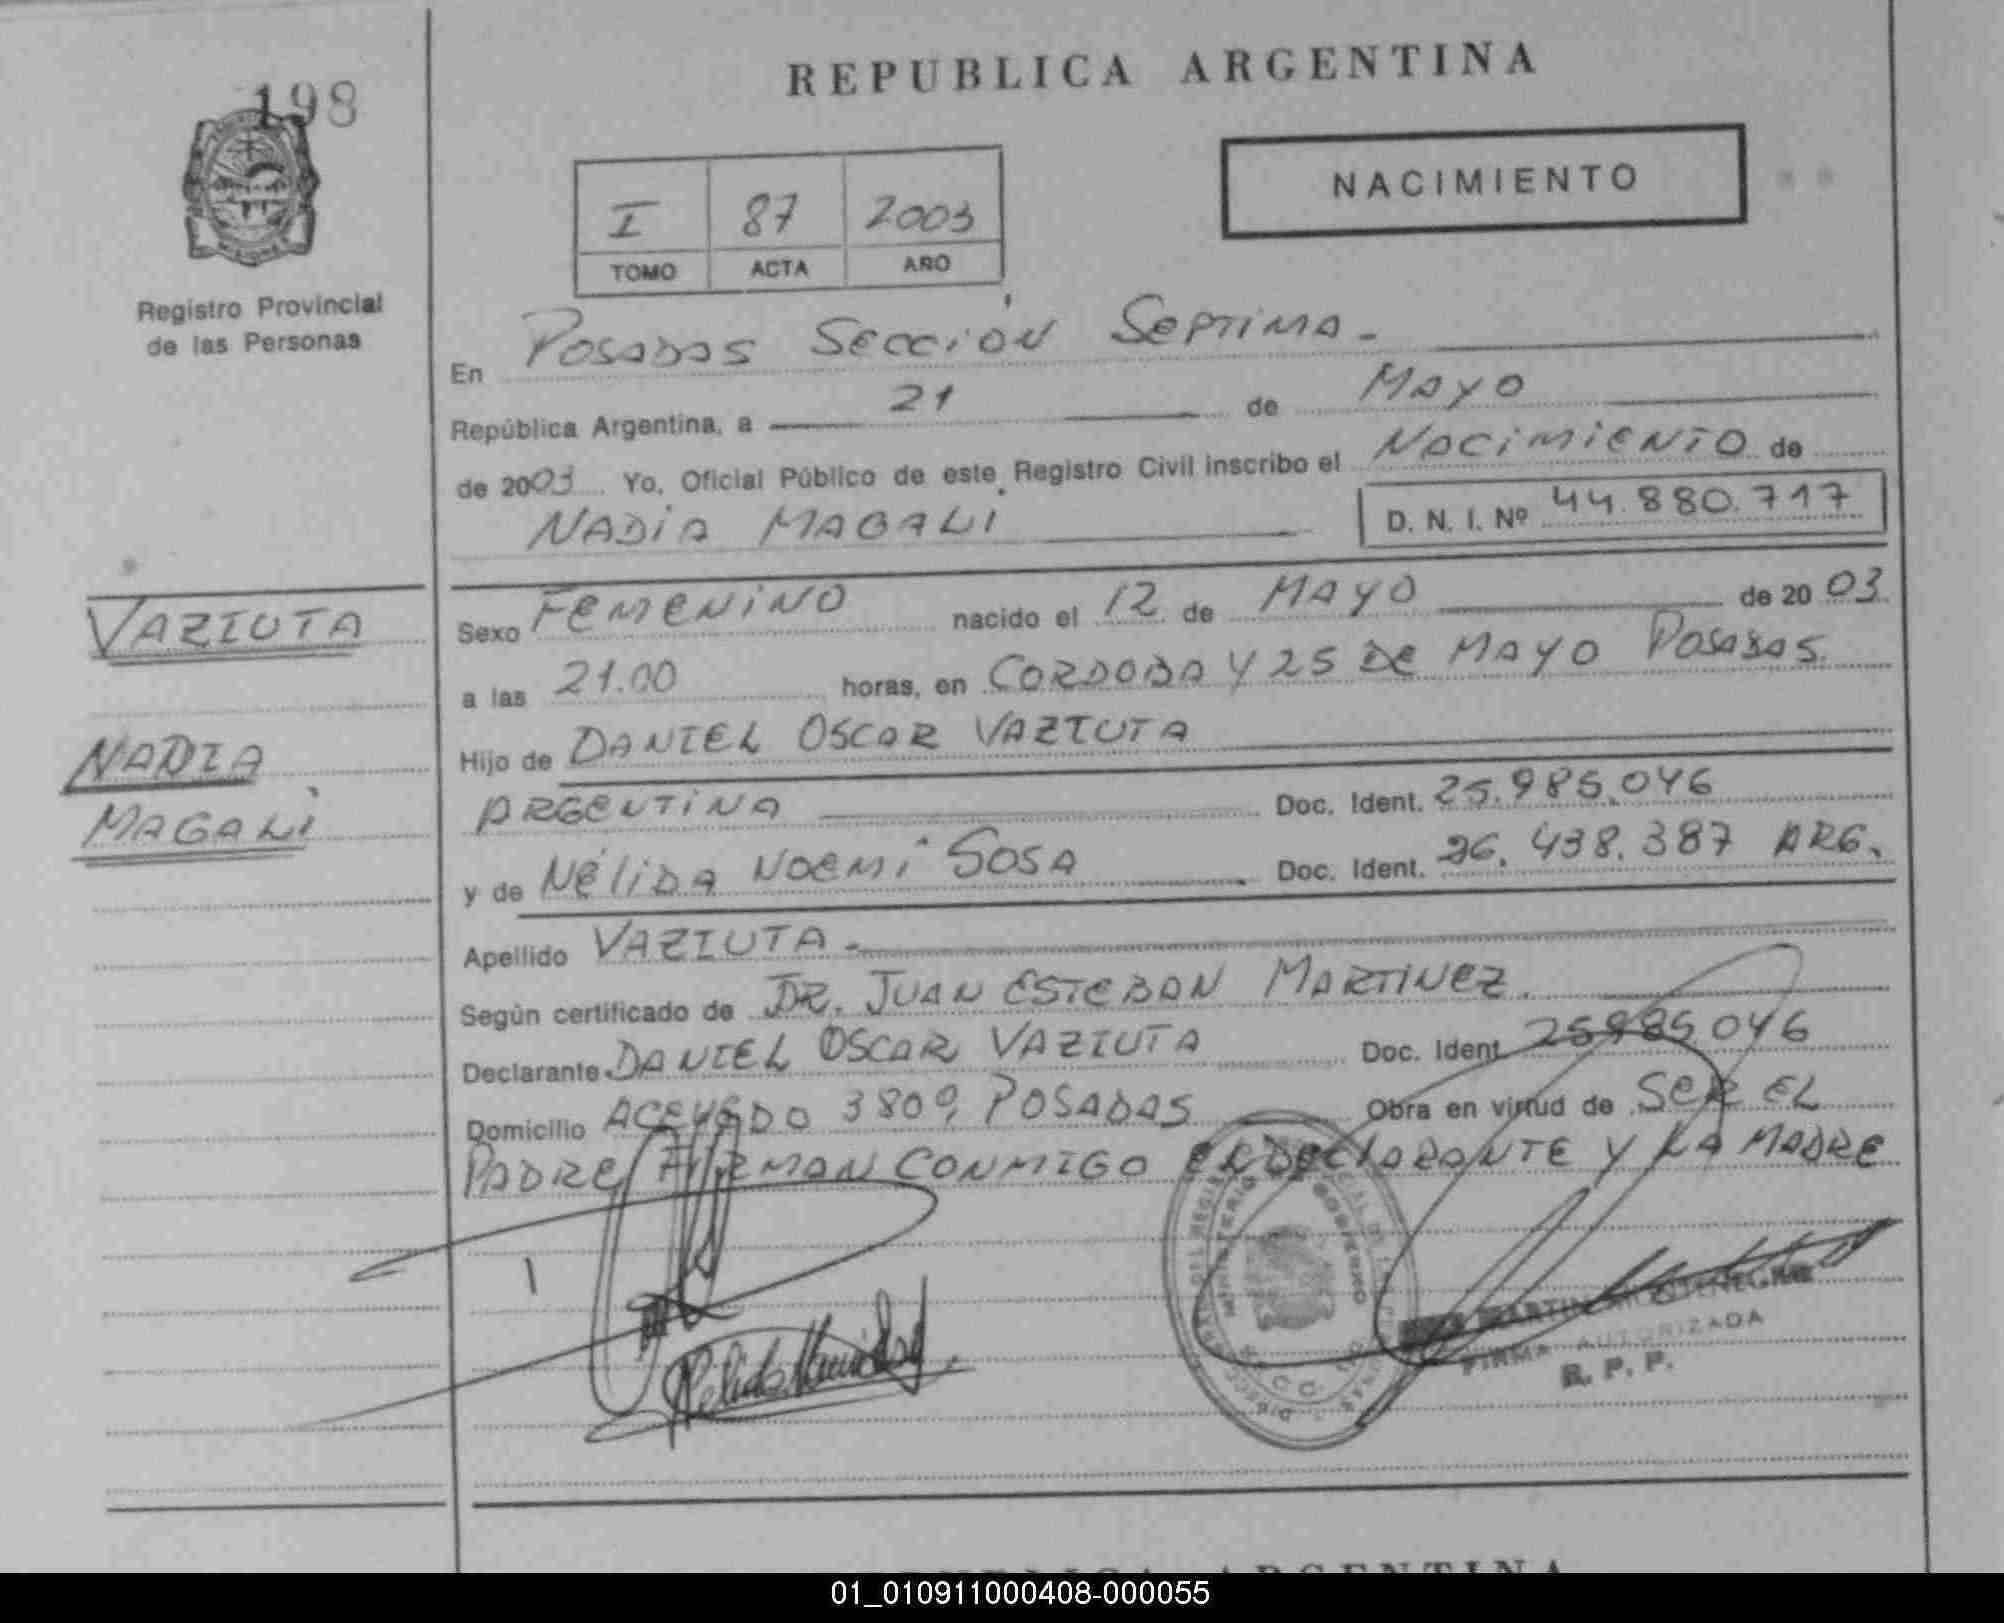 REPUBLICA ARGENTINA
198
NACIMIENTO
I 87 2003
TOMO ACTA AÑO
Registro Provincial
de las Personas
En POSADAS SECCIÓN SEPTIMA.
República Argentina, a 21 de MAYO
de 2003 Yo, Oficial Público de este Registro Civil inscribo el NACIMIENTO de
NADIA MAGALI D. N. I. Nº 44.880.717
VAZIUTA
NADIA
MAGALI
Sexo FEMENINO nacido el 12 de MAYO de 2003
a las 21.00 horas, en CORDOBA Y 25 DE MAYO POSADAS.
Hijo de DANIEL OSCAR VAZIUTA
ARGENTINA Doc. Ident. 25.985.046
y de NÉLIDA NOEMI SOSA Doc. Ident. 26.438.387 ARG.
Apellido VAZIUTA.
Según certificado de DR. JUAN ESTEBAN MARTINEZ.
Declarante DANIEL OSCAR VAZIUTA Doc. Ident. 25985046
Domicilio ACEVEDO 3809, POSADAS Obra en virtud de SER EL
PADRE FIRMAN CONMIGO EL DECLARANTE Y LA MADRE
MINISTERIO GOBIERNO
FIRMA AUTORIZADA
R. P. P.
REPUBLICA ARGENTINA
01_010911000408-000055